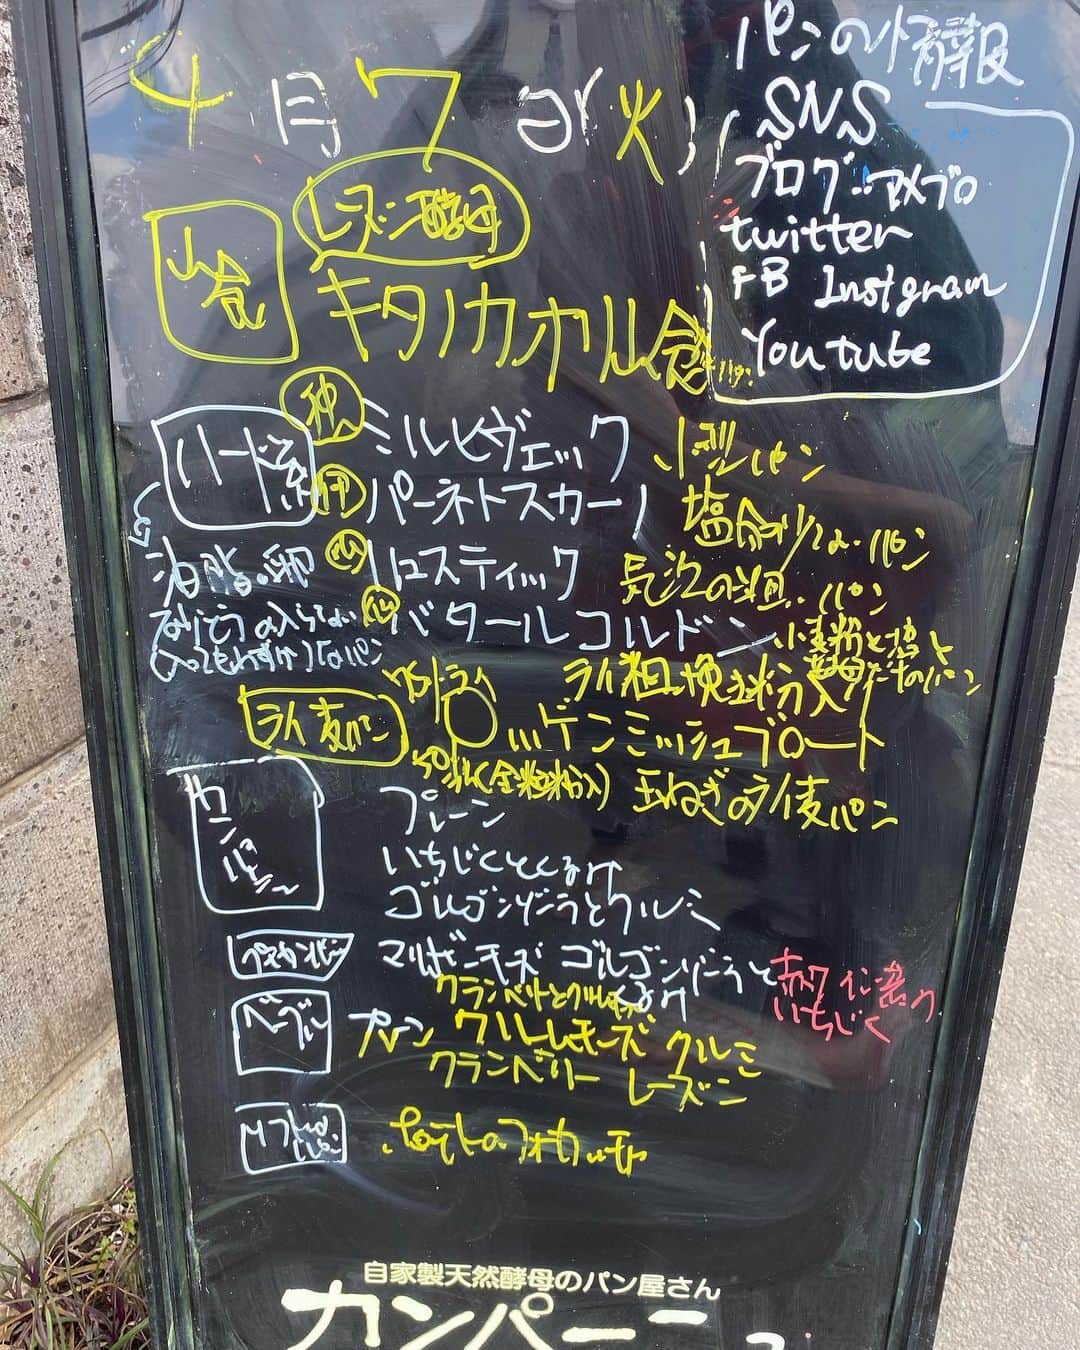 4月7日(火)
パンの情報
SNS
ブログ…アメブロ
twitter
FB Instgram
Youtube
レーズン酵母
山食
キタノカオル山食
ハード系
油脂・卵
ミルヒヴェック 小型パン
パーネトスカーノ 塩分少ないパン
リュスティック 長沢の湯だねパン
バタールコルドン 小麦粉と塩と
ライ麦パン
ライ粗挽全粒粉入
ロッゲンミッシュブロート
玉ねぎのライ麦パン
カンパーニュ
プレーン
いちじくとくるみ
ゴルゴンゾーラとクルミ
プチカンパ
クリームチーズ ゴルゴンゾーラとくるみ
赤ワイン煮のいちじく
ベーグル
プレーン クリームチーズ クルミ
クランベリー レーズン
ソフトなパン
ポテトのフォカッチャ
自家製天然酵母のパン屋さん
カンパーニュ